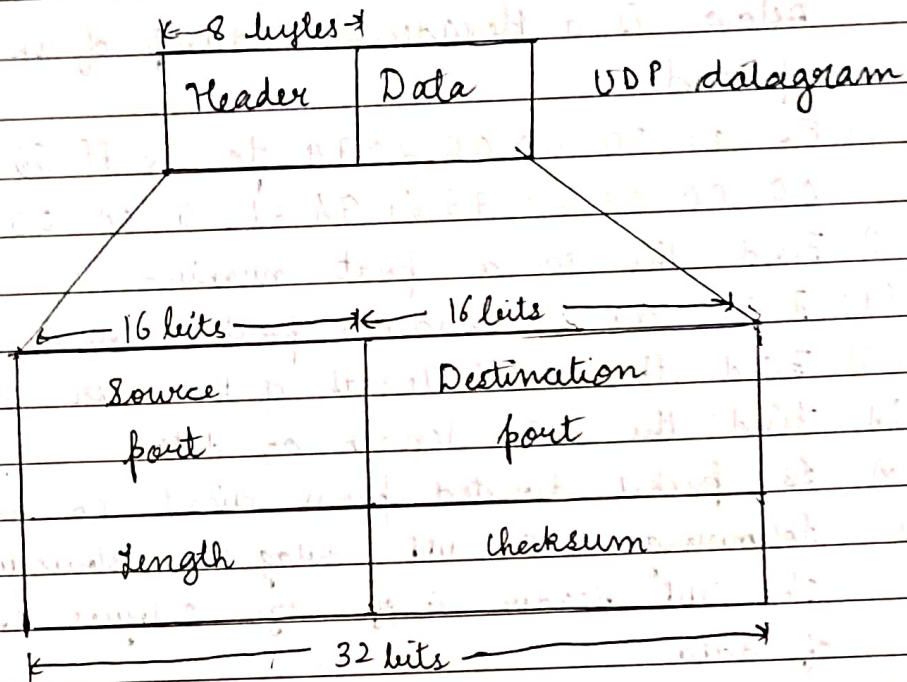 8 bytes
Header Data UDP datagram
16 bits 16 bits
Source Destination
port port
Length Checksum
32 bits